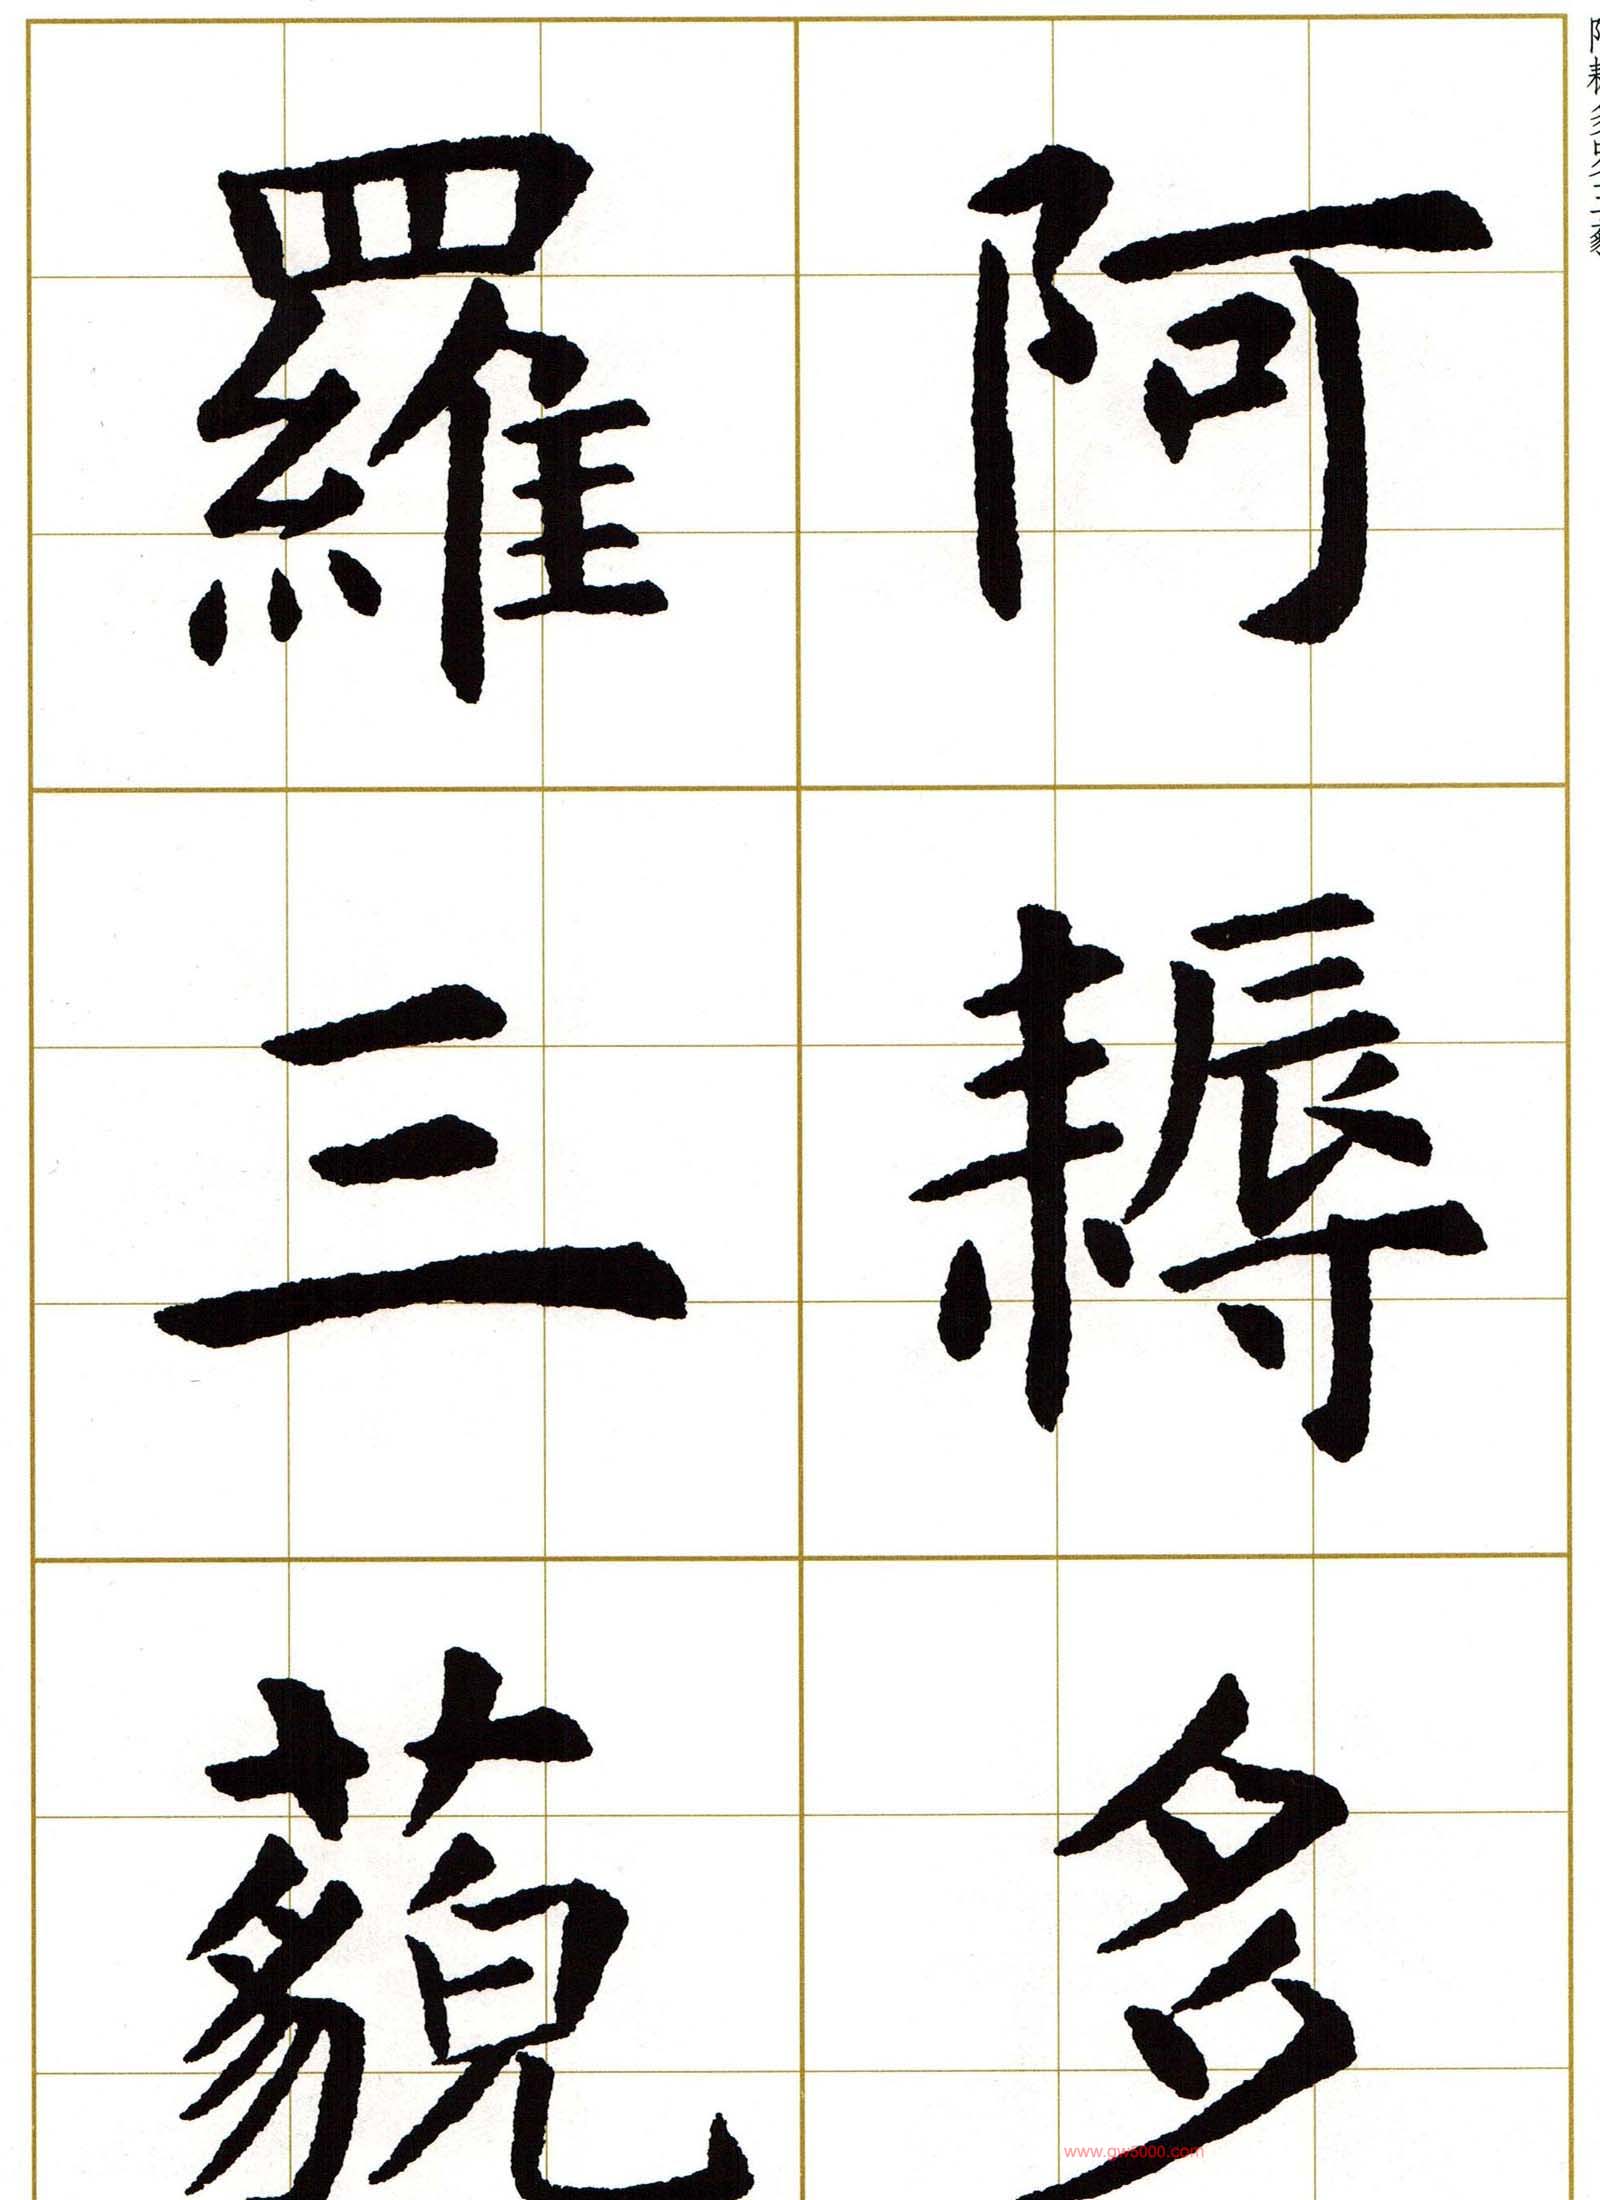 阿耨多
羅三藐
阿耨多羅三藐
www.gw5000.com